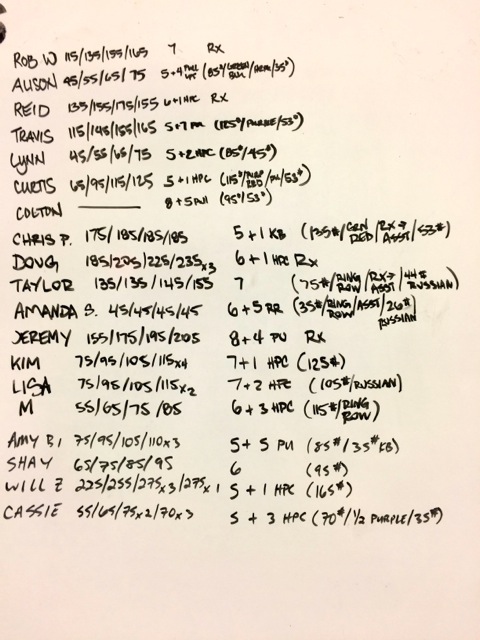 ROB W 115/135/155/165 7 Rx
ALISON 45/55/65/75 5+4 PULL UPS (85#/GREEN BLUE/HERE/35#)
REID 135/155/175/155 6+1 HPC Rx
TRAVIS 115/145/155/165 5+7 PU (125#/PURPLE/53#)
LYNN 45/55/65/75 5+2 HPC (85#/45#)
CURTIS 65/95/115/125 5+1 HPC (115#/PURP RED/PU/53#)
COLTON ——— 8+5 PULL (95#/53#)
CHRIS P. 175/185/185/185 5+1 KB (135#/GRN RED/RX→ ASST/53#)
DOUG 185/205/225/235x3 6+1 HPC Rx
TAYLOR 135/135/145/155 7 (75#/RING ROW/RX→ ASST/44# RUSSIAN)
AMANDA S. 45/45/45/45 6+5 RR (35#/RING ROW/ASST/26# RUSSIAN)
JEREMY 155/175/195/205 8+4 PU Rx
KIM 75/95/105/115x4 7+1 HPC (125#)
LISA 75/95/105/115x2 7+2 HPC (105#/RUSSIAN)
M 55/65/75/85 6+3 HPC (115#/RING ROW)
AMY B. 75/95/105/110x3 5+5 PU (85#/35# KB)
SHAY 65/75/85/95 6 (95#)
WILL Z 225/255/275x3/275x1 5+1 HPC (165#)
CASSIE 55/65/75x2/70x3 5+3 HPC (70#/1/2 PURPLE/35#)